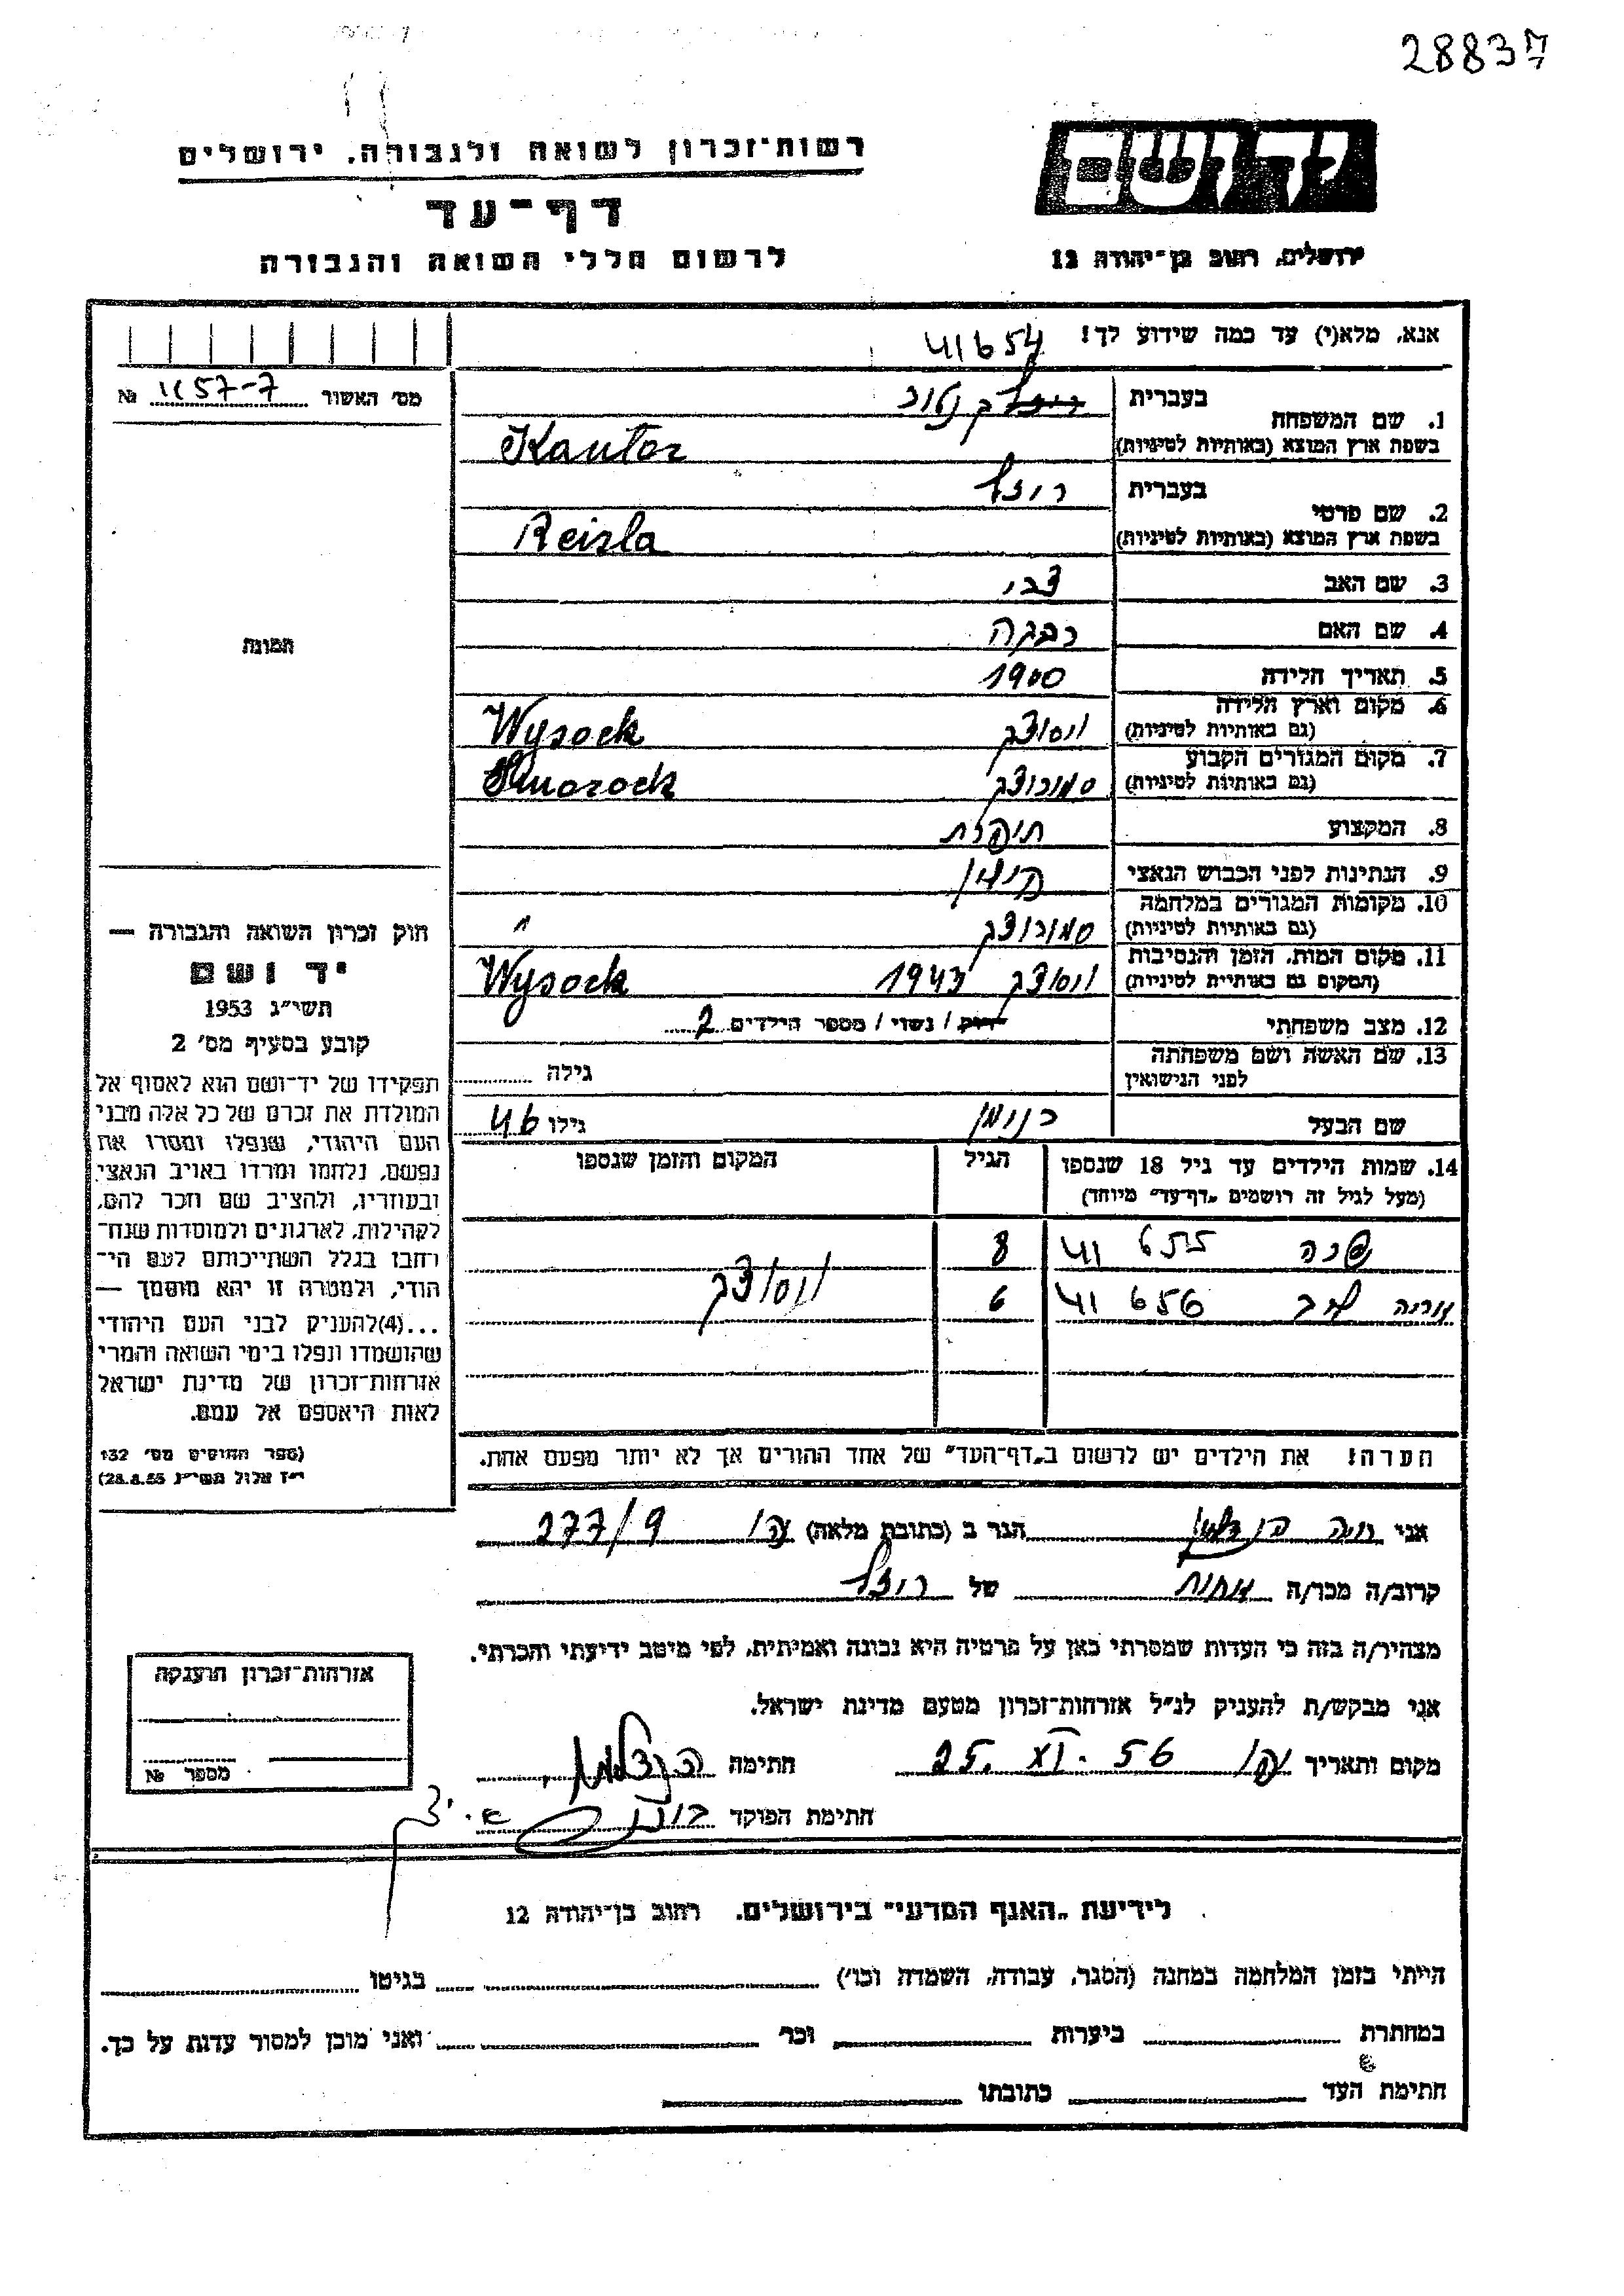 28837
רשות־זכרון לשואה ולגבורה, ירושלים
יד ושם
דף־עד
לרשום חללי השואה והגבורה
ירושלים, רחוב בן־יהודה 12
אנא, מלא(י) עד כמה שידוע לך!
41654
מס' האשור 1157-7 №
1. שם המשפחה
בעברית קנטור
בשפת ארץ המוצא (באותיות לטיניות) Kantor
2. שם פרטי
בעברית רייזל
בשפת ארץ המוצא (באותיות לטיניות) Reizla
3. שם האב צבי
4. שם האם רבקה
5. תאריך הלידה 1900
6. מקום וארץ הלידה
(גם באותיות לטיניות) ויסוצק Wysock
7. מקום המגורים הקבוע
(גם באותיות לטיניות) סמורוצק Smorock
8. המקצוע תופרת
9. הנתינות לפני הכבוש הנאצי פולין
10. מקומות המגורים במלחמה
(גם באותיות לטיניות) סמורוצק "
11. מקום המות, הזמן והנסיבות
(המקום גם באותיות לטיניות) ויסוצק 1943 Wysock
12. מצב משפחתי רוק / נשוי / מספר הילדים 2
13. שם האשה ושם משפחתה
לפני הנישואין
גילה
שם הבעל
גילו 46
14. שמות הילדים עד גיל 18 שנספו
(מעל לגיל זה רושמים „דף־עד" מיוחד)
הגיל
המקום והזמן שנספו
שרה 41655 8
אריה לב 41656 6
ויסוצק
הערה! את הילדים יש לרשום ב„דף־העד" של אחד ההורים אך לא יותר מפעם אחת.
תמונה
חוק זכרון השואה והגבורה —
יד ושם
תשי"ג 1953
קובע בסעיף מס' 2
תפקידו של יד־ושם הוא לאסוף אל
המולדת את זכרם של כל אלה מבני
העם היהודי, שנפלו ומסרו את
נפשם, נלחמו ומרדו באויב הנאצי
ובעוזריו, ולהציב שם וזכר להם,
לקהילות, לארגונים ולמוסדות שנח־
רחבו בגלל השתייכותם לעם הי־
הודי, ולמטרה זו יהא מוסמך —
...(4)להעניק לבני העם היהודי
שהושמדו ונפלו בימי השואה והמרי
אזרחות־זכרון של מדינת ישראל
לאות היאספם אל עמם.
(ספר החוקים מס' 132
י"ז אלול תשי"ג 28.8.55)
אני חיה הנדלמן הגר ב (כתובת מלאה) עכו 277/9
קרוב/ה מכר/ה אחות של רייזל
מצהיר/ה בזה כי העדות שמסרתי כאן על פרטיה היא נכונה ואמיתית, לפי מיטב ידיעתי והכרתי.
אני מבקש/ת להעניק לנ"ל אזרחות־זכרון מטעם מדינת ישראל.
מקום ותאריך עכו 25. XI. 56 חתימה הנדלמן
חתימת הפוקד
אזרחות־זכרון הוענקה
מספר №
לידיעת „האגף המדעי" בירושלים, רחוב בן־יהודה 12
הייתי בזמן המלחמה במחנה (הסגר, עבודה, השמדה וכו') בגיטו
במחתרת ביערות וכו' ואני מוכן למסור עדות על כך.
חתימת העד כתובתו